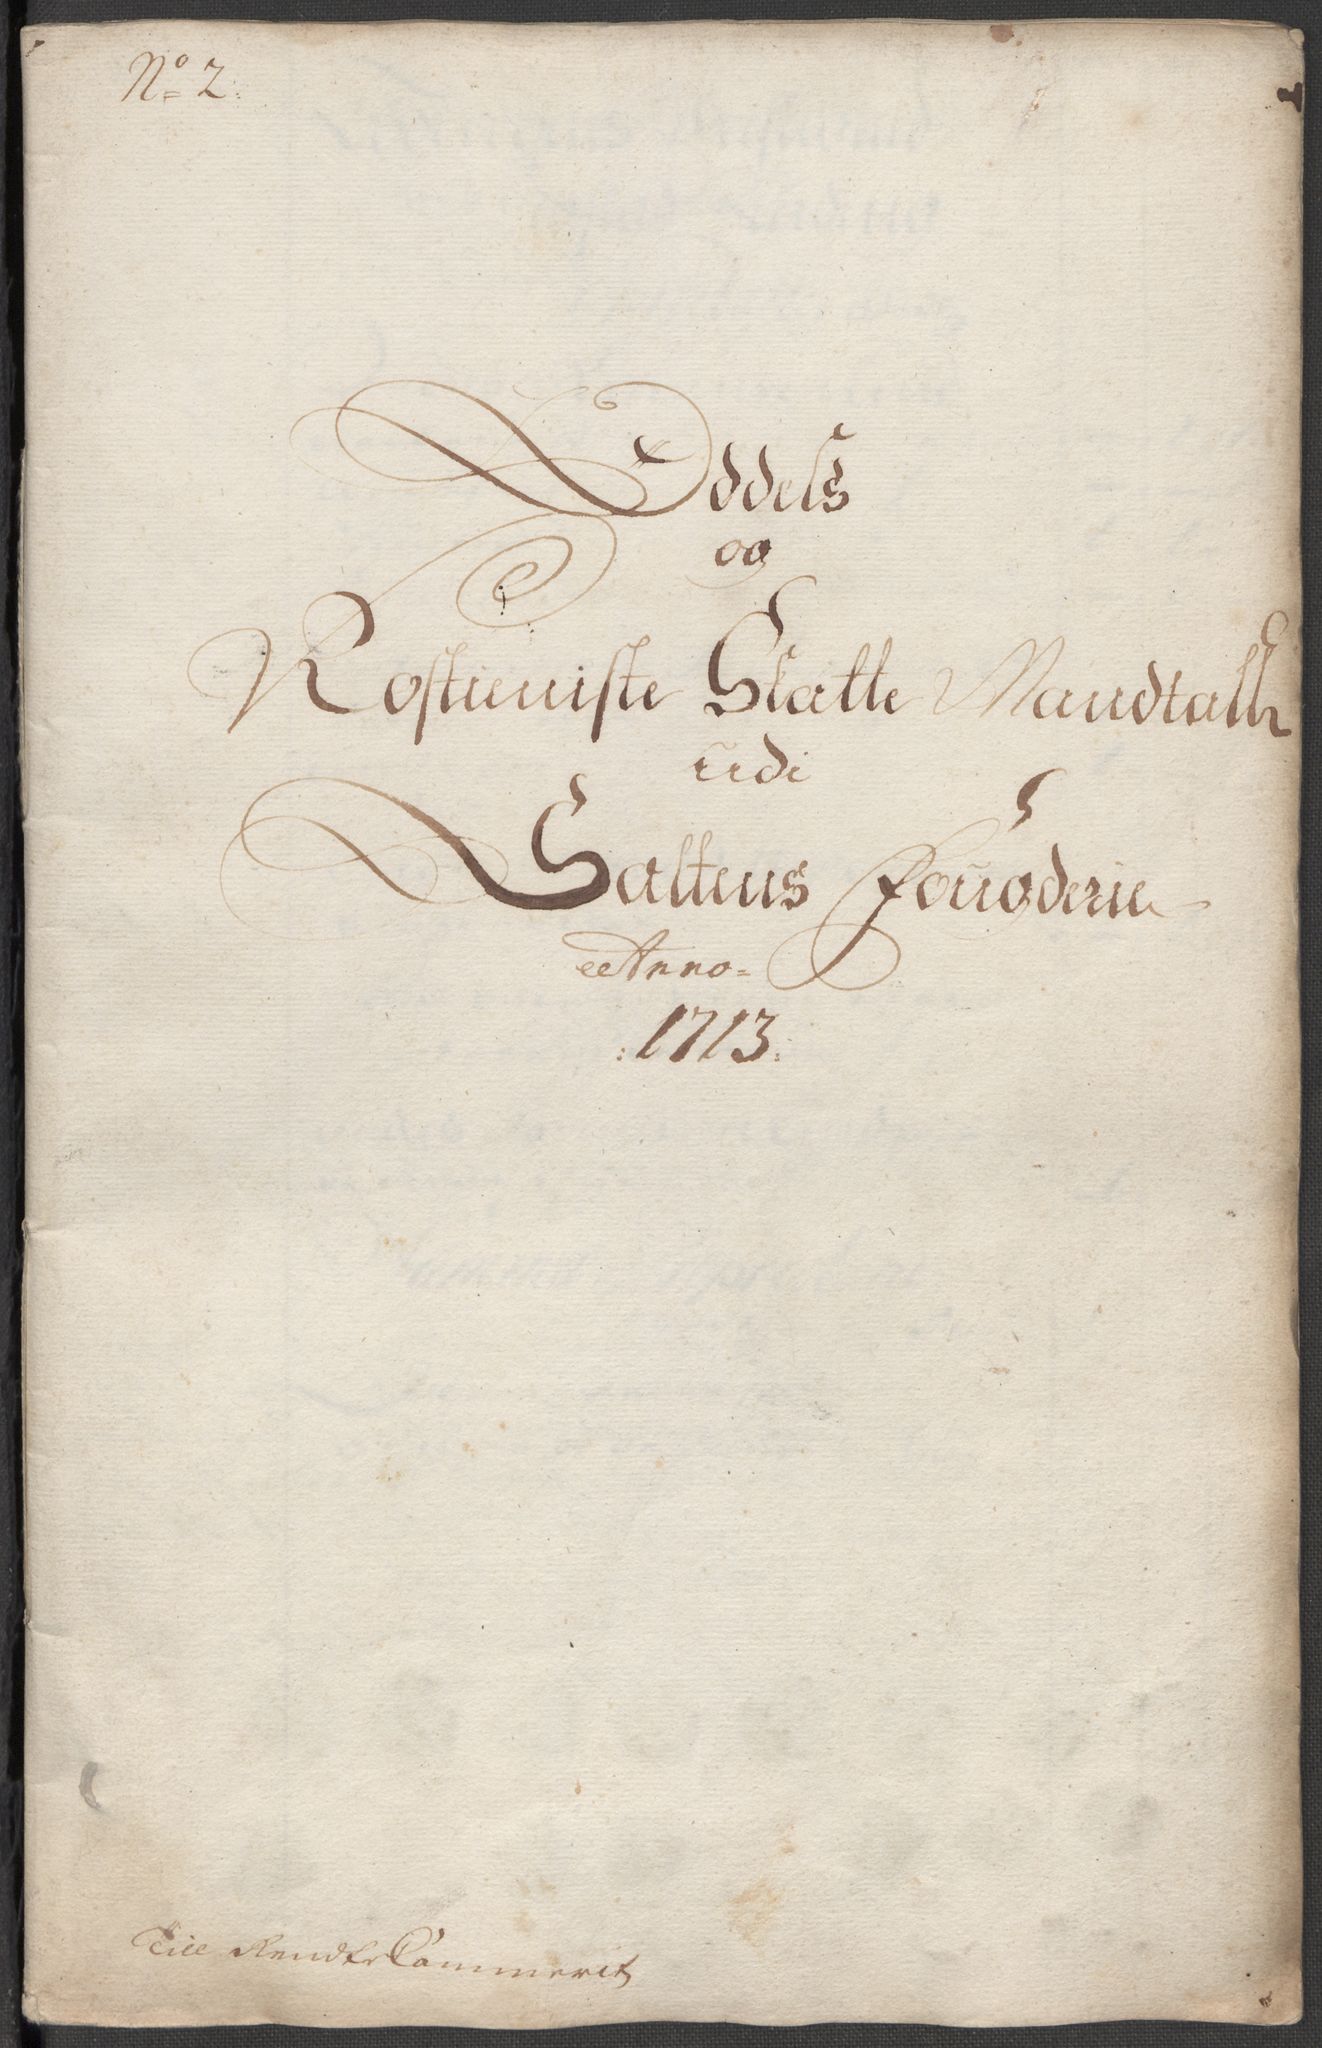 No 2.
Oddels
og
Rostieniste Skatte Mandtall
udi
Saltens Fougderie
Anno
:1713:
Till RendteCammerit